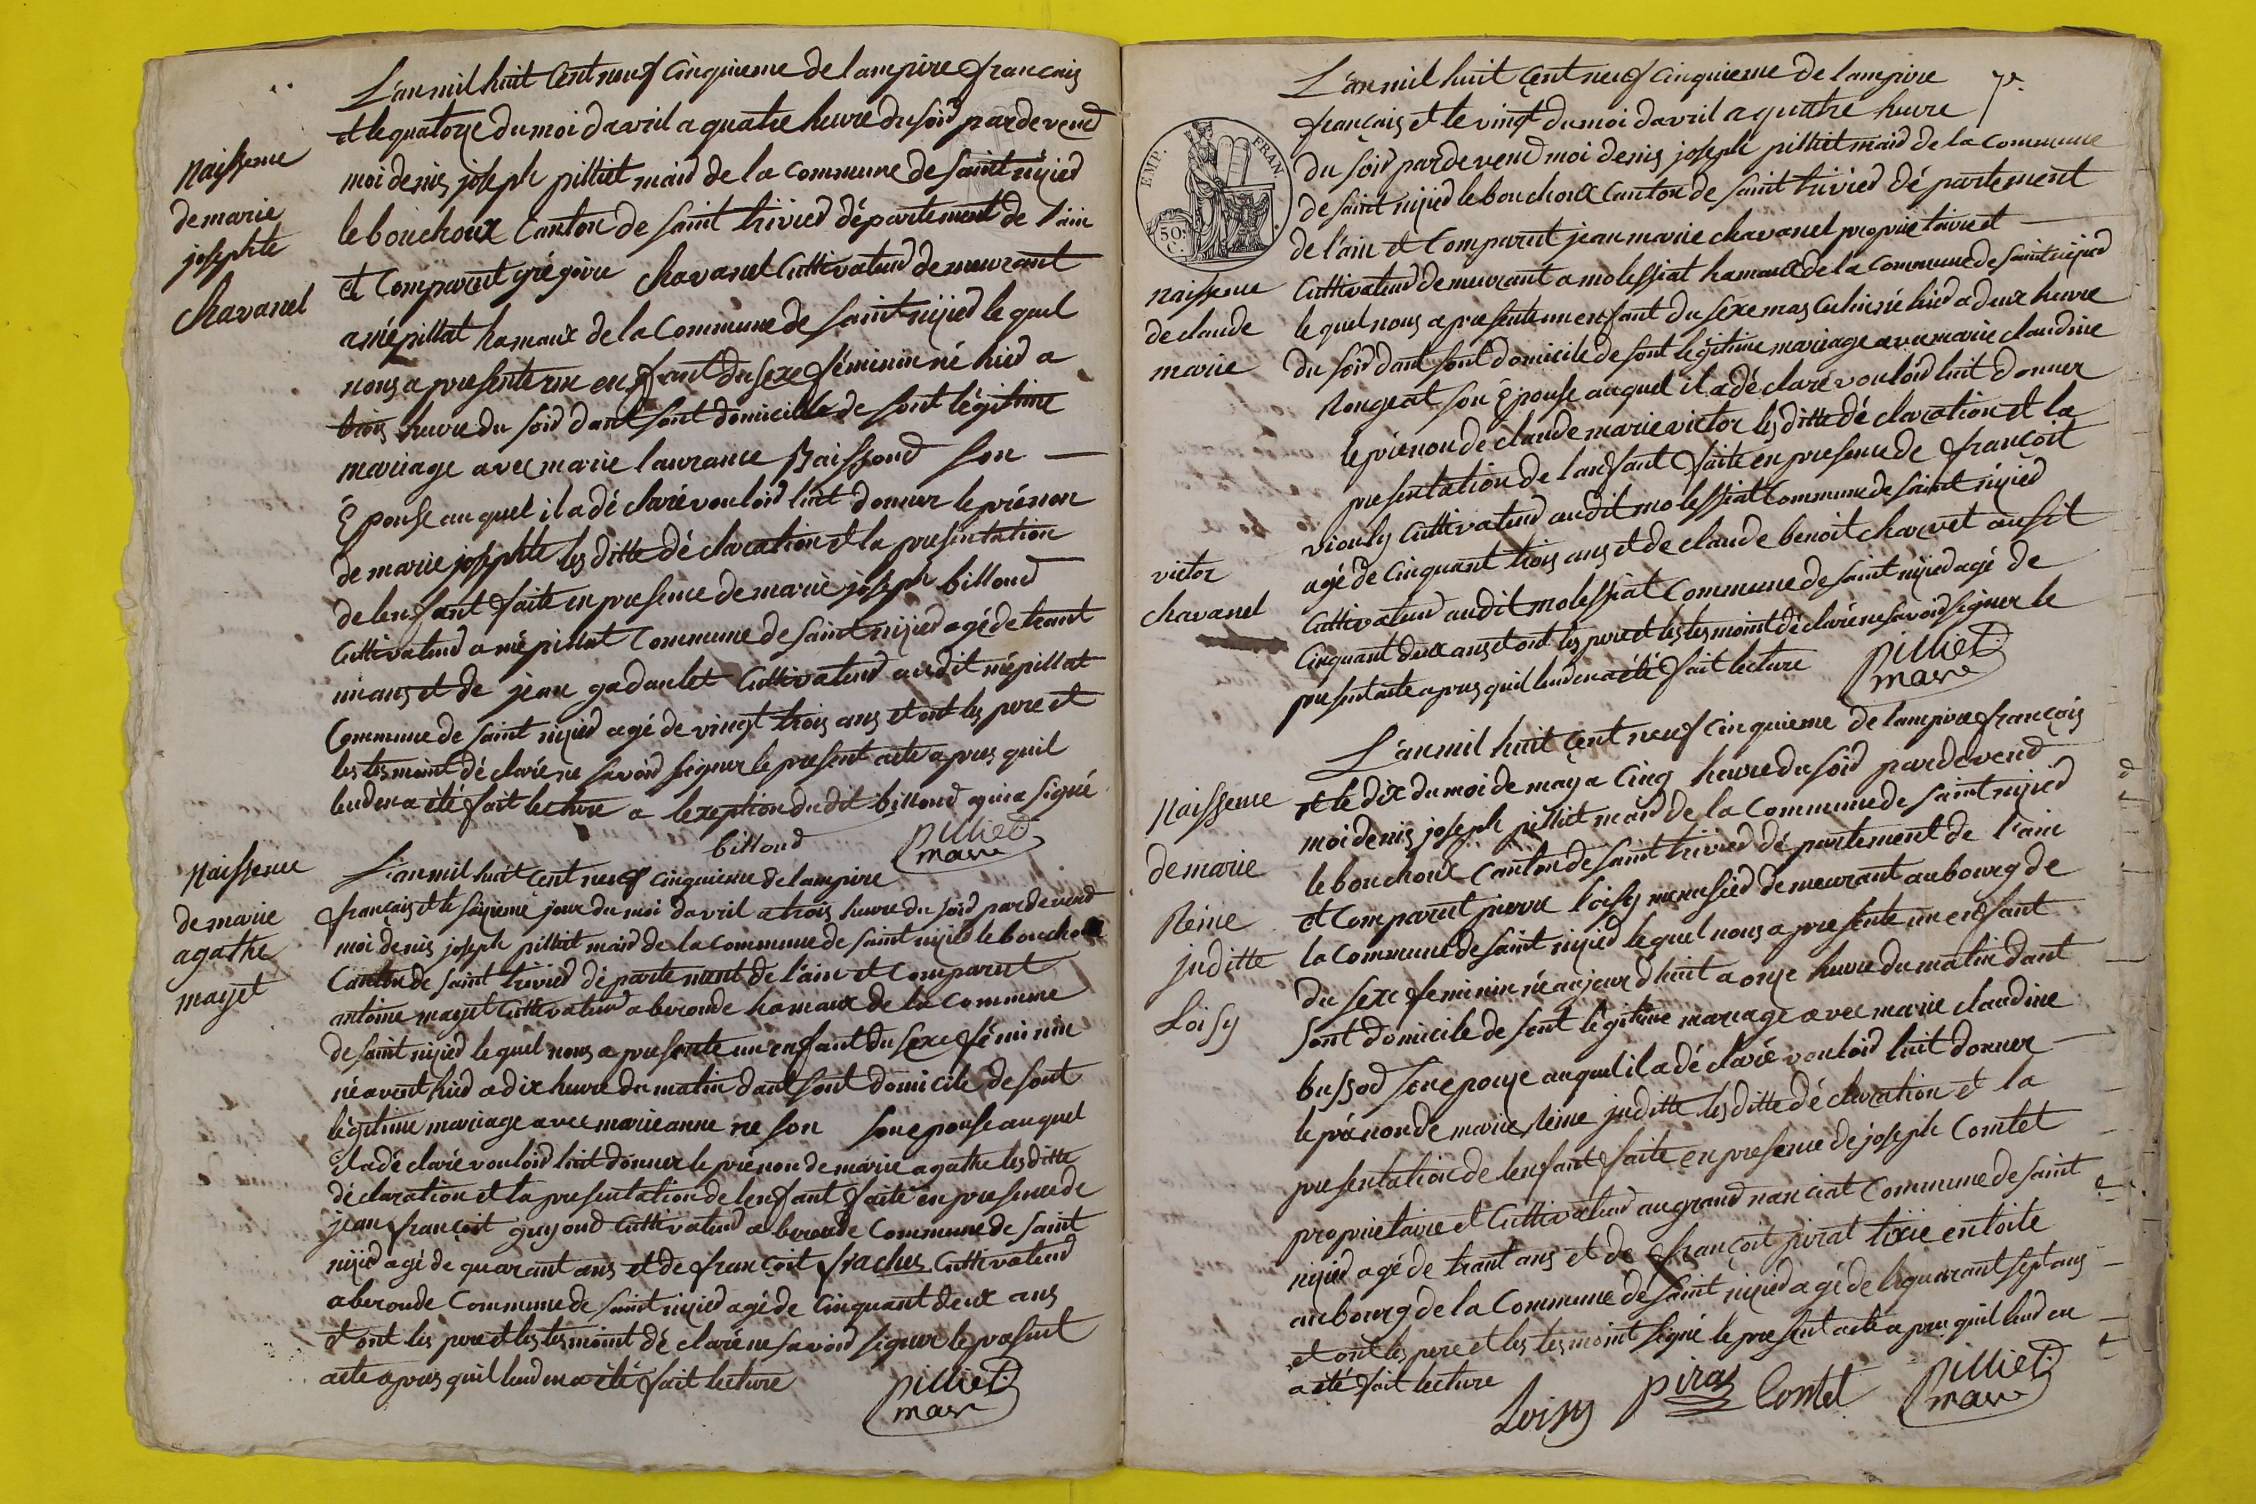 L'an mil huit Cent neuf Cinquieme de lampire francais
et le quatorze du moi davril a quatre heure du soir par de vend
naissence
moi denis joseph pilliet maid de la Commune de saint nizied
de marie
le bouchoux Canton de saint trivied département de l'ain
josephte
et Comparut grégoire chavanel Cultivateud demeurant
chavanel
a mépillat hamaux de la Commune de saint nizied le quel
nous a presente un en fant du sexe féminin né hied a
trois heure du soid dant sont domicille de sont légitime
mariage avec marie laurance Baissond son
épouse au quel il a dé claré vouloid luit donner le prénon
de marie josephte les ditte dé claration et la presentation
de len fant faite en presence de marie joseph billoud
Cultivateud a mépillat Commune de saint nizied agé de trant
un ans et de jean gadaulet Cultivateud au dit mépillat
Commune de saint nizied agé de vingt trois ans et ont les pere et
les tesmoint dé claré ne savoid signer le present acte apres quil
leud en a été fait lecture a lexeption du dit billoud qui a signé
billoud pilliet
mare
naissence
L'an mil huit cent neuf cinquieme de lampire
de marie
francais et le seizieme jour du moi davril a trois heure du soid par de vend
agathe
moi denis joseph pilliet maid de la Commune de saint nizied le bouchoux
mayet
Canton de saint trivied département de l'ain et Comparut
antoine mayet Cultivateud a beronde hamaux de la Commune
de saint nizied le quel nous a presente un enfant du sexe féminin
né avent hied a dix heure du matin dant sont domicile de sont
légitime mariage avec marie anne ne son son epouse au quel
il a dé claré vouloid luit donner le prénon de marie agathe les ditte
déclaration et la presentation de len fant faite en presence de
jean françoit guyoud Cultivateud a beronde Commune de saint
nizied agé de quarant ans et de françoit fraches Cultivateud
a beronde Commune de saint nizied agé de Cinquant deux ans
et ont les pere et les tesmoint dé claré ne savoid signer le present
acte apres quil leud en a été fait lecture
pilliet
mare
L'an mil huit Cent neuf cinquieme de lampire
francais et le vingt du moi davril a quatre heure
du soid par de vend moi denis joseph pilliet maid de la Commune
de saint nizied le bouchoux Canton de saint trivied dé partement
EMP. FRAN.
50 C.
de l'ain et Comparut jean marie chavanel proprietaire et
naissence
Cultivateud demeurant a molessiat hamaux de la Commune de saint nizied
de claude
le quel nous a presente un en fant du sexe masculin né hied a deux heure
marie
du soid dant sont domicile de sont légitime mariage avec marie claudine
Rongeat son épouse au quel il a dé claré vouloid luit donner
le prénon de claude marie victor les ditte dé claration et la
presentation de lanfant faite en presence de françoit
viouly Cultivateud au dit molessiat Commune de saint nizied
victor
agé de Cinquant trois ans et de claude benoit charvet ausit
chavanel
Cultivateud au dit molessiat Commune de saint nizied agé de
Cinquant deux ans et ont les pere et les tesmoint dé claré ne savoid signer le
present acte apres quil leud en a été fait lecture
pilliet
mare
L'an mil huit Cent neuf cinquieme de lampire françois
et le dix du moi de may a Cinq heure du soid par de vend
naissence
moi denis joseph pilliet maid de la Commune de saint nizied
de marie
le bouchoux Canton de saint trivied dé partement de l'ain
Reine
et Comparut pierre loisy menusied demeurant au bourg de
juditte
la Commune de saint nizied le quel nous a presente un en fant
Loisy
du sexe feminin né aujourd'huit a onze heure du matin dant
sont domicile de sont légitime mariage avec marie claudine
bussod son epouze au quel il a dé claré vouloid luit donner
le prénon de marie Reine juditte les ditte dé claration et la
presentation de len fant faite en presence de joseph Comtet
proprietaire et Cultivateud au grand nanciat Commune de saint
nizied agé de trant ans et de françoit pirat tixie en toile
au bourg de la Commune de saint nizied agé de quarant sept ans
et ont les pere et les tesmoint signé le present acte apres quil leud en
a été fait lecture
Loisy pirat Comtet pilliet
mare